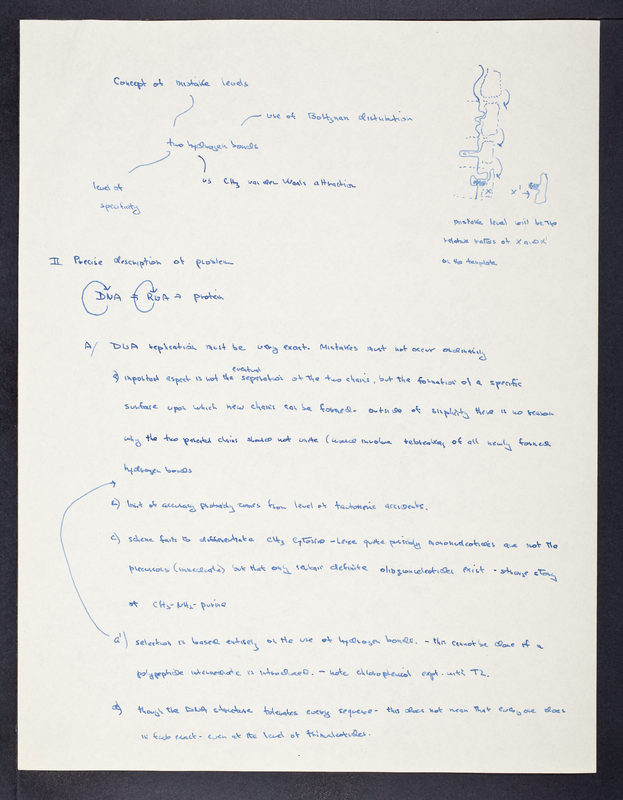 Concept of mistake levels
use of Boltzman distribution
two hydrogen bonds
level of
specificity
vs CH3 van der Waals attraction
X
X'
mistake level will be the
relative ratios of X and X'
on the template
II Precise description of problem
DNA ⇌ RNA → protein
A/ DNA replication must be very exact. Mistakes must not occur ordinarily
a) important aspect is not the eventual separation of the two chains, but the formation of a specific
surface upon which new chains can be formed - outside of simplicity there is no reason
why the two parental chains should not unite (would involve rebreaking of all newly formed
hydrogen bonds
b) limit of accuracy probably comes from level of tautomeric accidents.
c) scheme fails to differentiate CH3 Cytosine - hence quite possibly mononucleotides are not the
precursors (immediate) but that only certain definite oligonucleotides exist - strange story
of CH3-NH2-purine
a') selection is based entirely on the use of hydrogen bonds. - this cannot be done if a
polypeptide intermediate is introduced. - note chloramphenicol expt. with T2.
d) though the DNA structure tolerates every sequence - this does not mean that every one does
in fact exist - even at the level of trinucleotides.